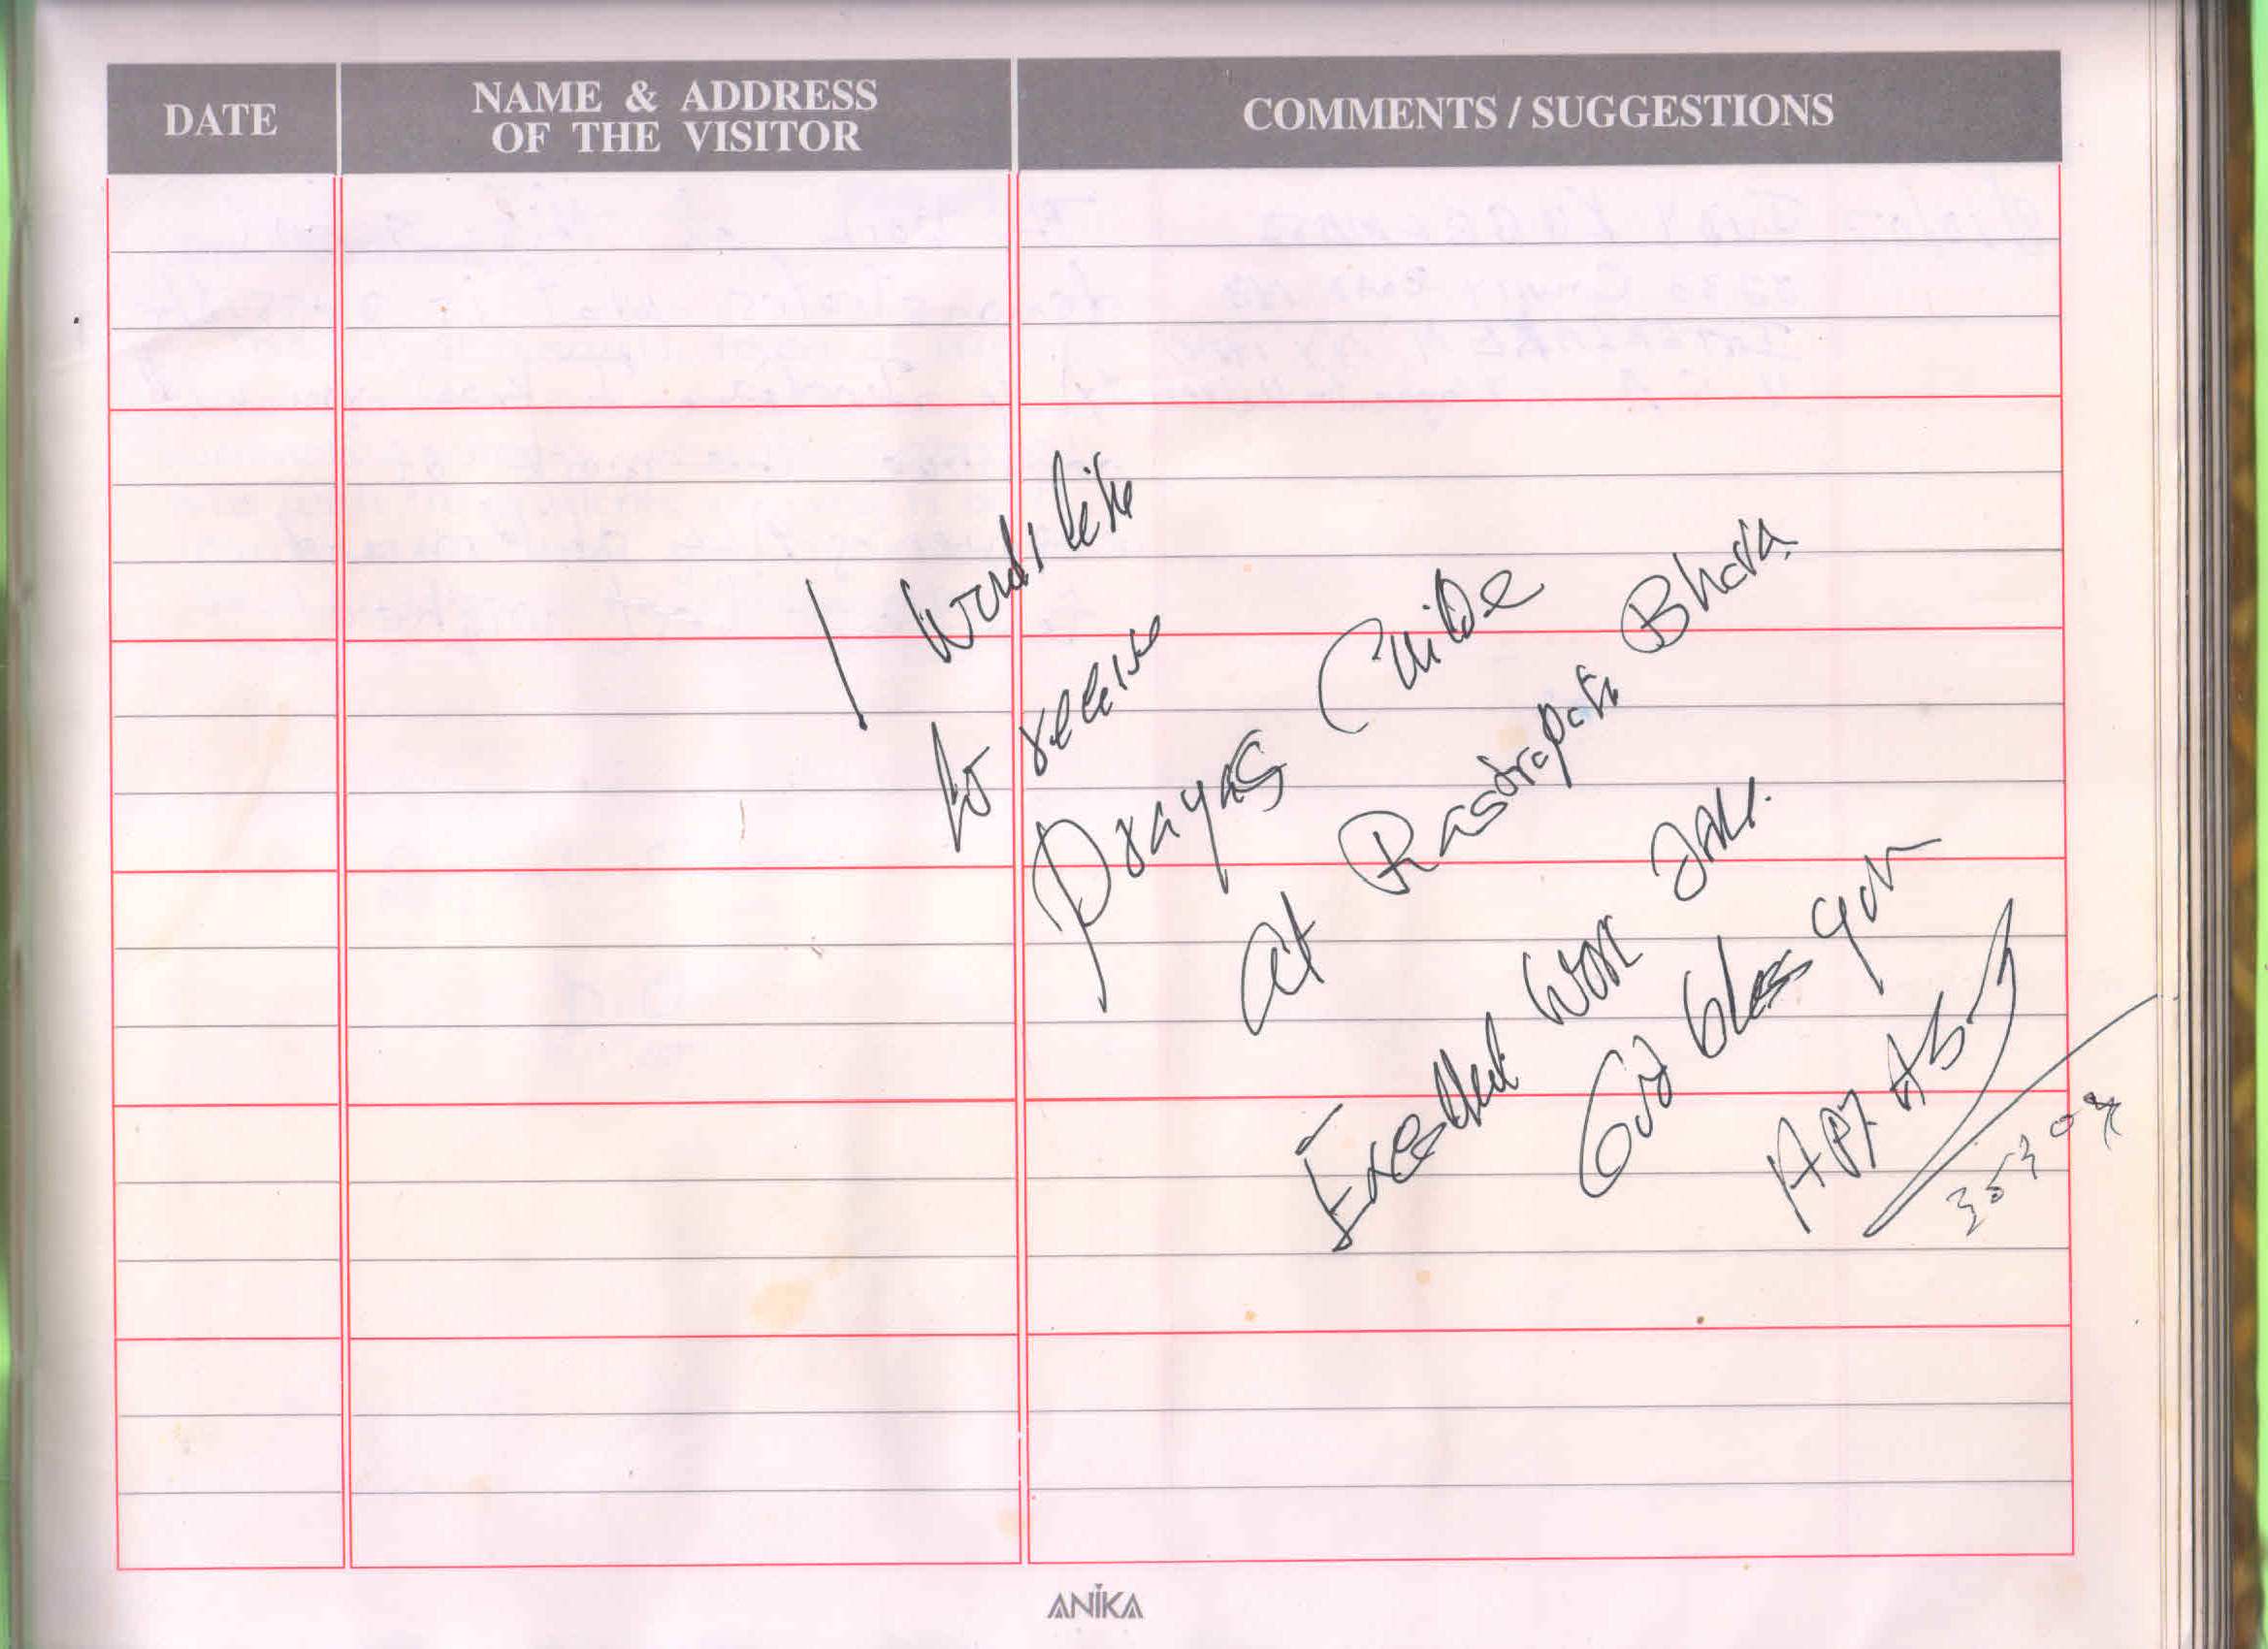 DATE
NAME & ADDRESS
OF THE VISITOR
COMMENTS / SUGGESTIONS
I would like
to receive
Prayas Childe
at Rastrapati Bhava
Excellent Work Done.
God bless you
ANIKA